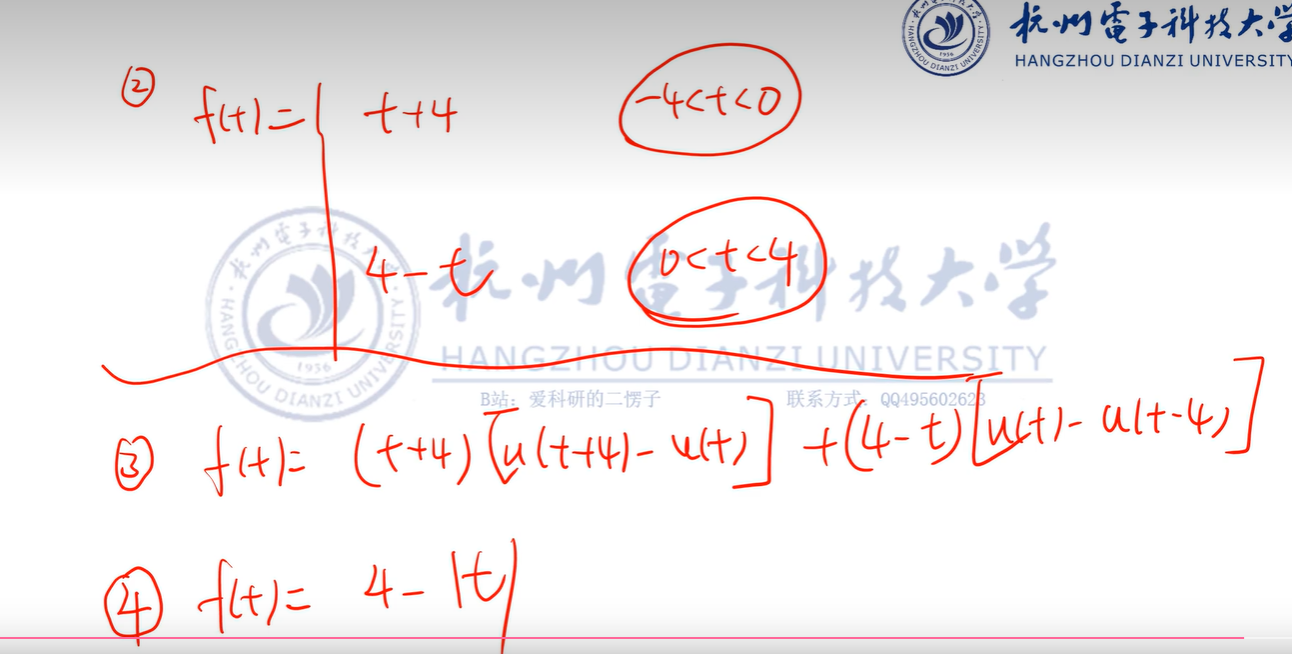 杭州電子科技大学
HANGZHOU DIANZI UNIVERSITY
② f(t)= t+4 -4<t<0
4-t 0<t<4
杭州電子科技大学
HANGZHOU DIANZI UNIVERSITY
1956
B站：爱科研的二愣子 联系方式：QQ495602623
③ f(t)= (t+4)[u(t+4)-u(t)]+(4-t)[u(t)-u(t-4)]
④ f(t)= 4-|t|